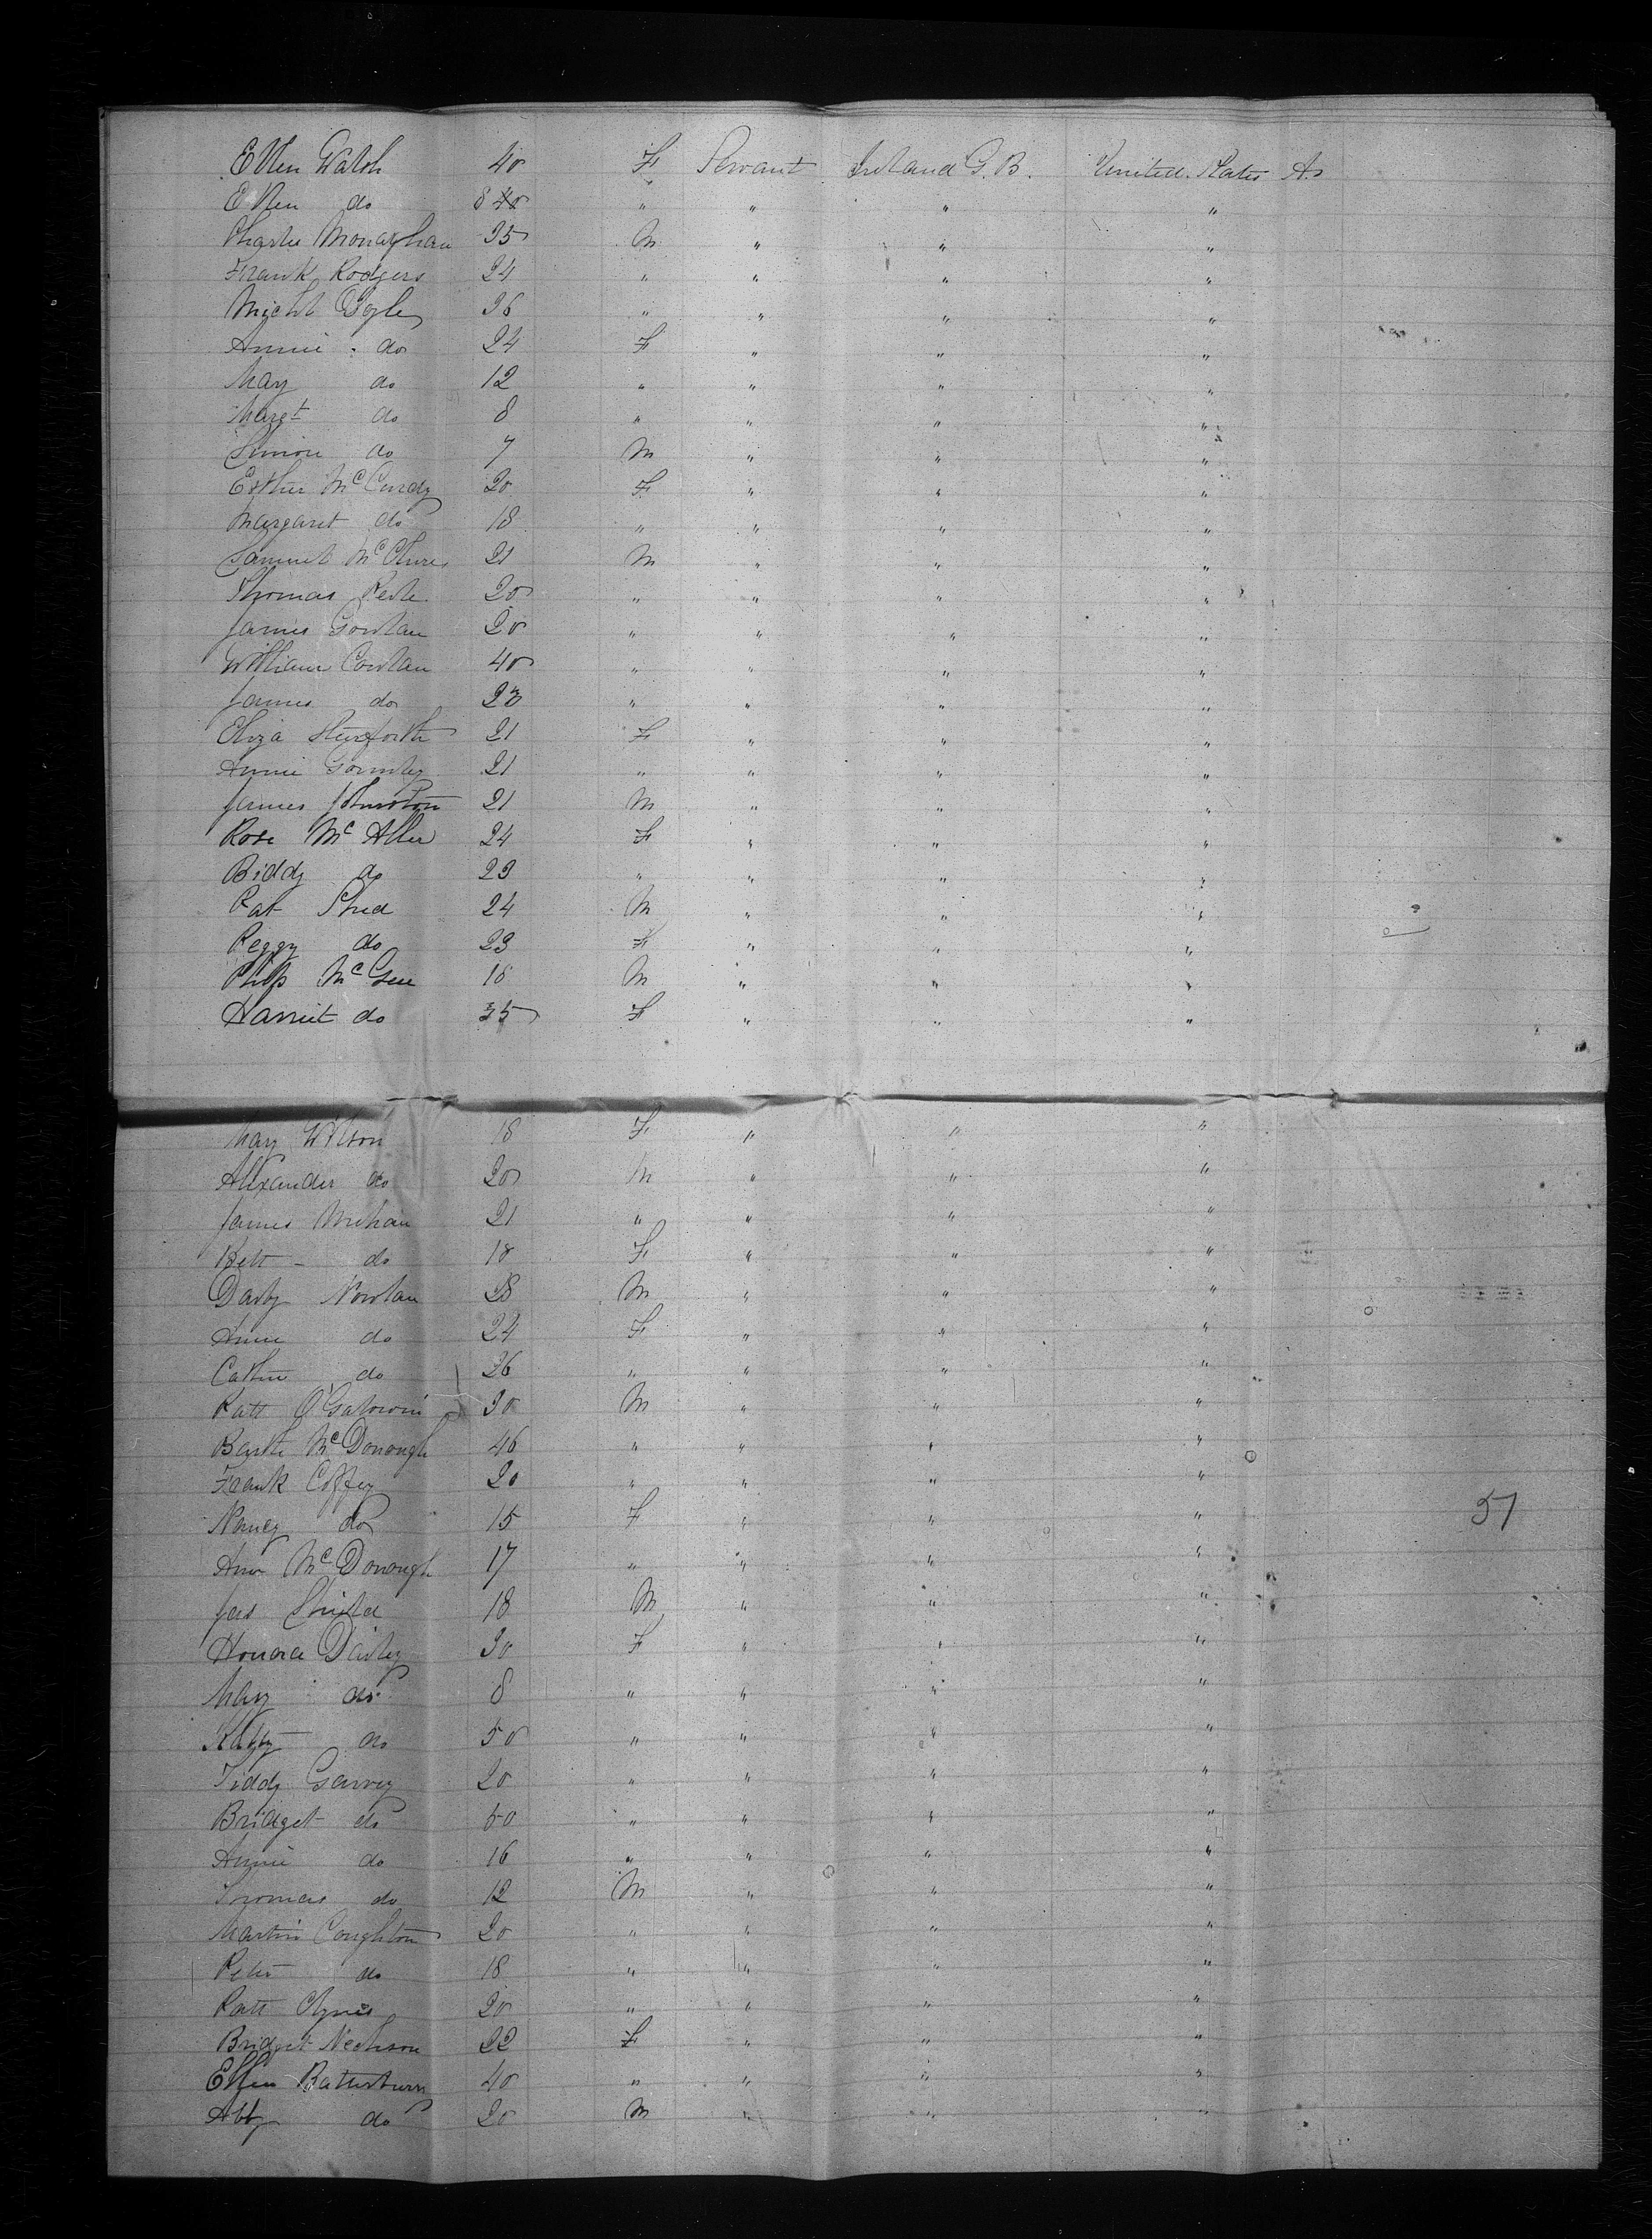 Ellen Walsh 40 F Servant Ireland G. B. United States A.
Ellen do 8 " " " "
Charles Monaghan 25 M " " "
Frank Rodgers 24 " " " "
Michl Boyle 26 " " " "
Annie do 24 F " " "
Mary do 12 " " " "
Margt do 8 " " " "
Simon do 7 M " " "
Esther McCurdy 20 F " " "
Margaret do 18 " " " "
Samuel McClure 21 M " " "
Thomas 20 " " " "
James Gowlan 20 " " " "
William Cowlan 40 " " " "
James do 23 " " " "
Eliza 21 F " " "
Annie Gormley 21 " " " "
James Johnston 21 M " " "
Rose Mc Aller 24 F " " "
Biddy do 23 " " " "
Pat Shed 24 M " " "
Peggy do 23 F " " "
Philp McGee 18 M " " "
Harriet do 35 F " " "
Mary Wilson 18 F " " "
Alexander do 20 M " " "
James Mehan 21 " " " "
Bett - do 18 F " " "
Darby Nowlan 28 M " " "
Anne do 24 F " " "
Cathne do 26 " " " "
Patt 30 M " " "
Barth McDonough 46 " " " "
Frank Coffey 20 " " " "
Nancy do 15 F " " " 51
Ann McDonough 17 " " " "
Jas Shield 18 M " " "
Honora Dailey 30 F " " "
Mary do 8 " " " "
Kitty do 50 " " " "
Tiddy Garvey 20 " " " "
Bridget do 50 " " " "
Annie do 16 " " " "
Thomas do 12 M " " "
Martin Coughlton 20 " " " "
Peter do 18 " " " "
Patt Clynes 20 " " " "
Bridget 22 F " " "
Ellen 40 " " " "
Abby do 20 M " " "